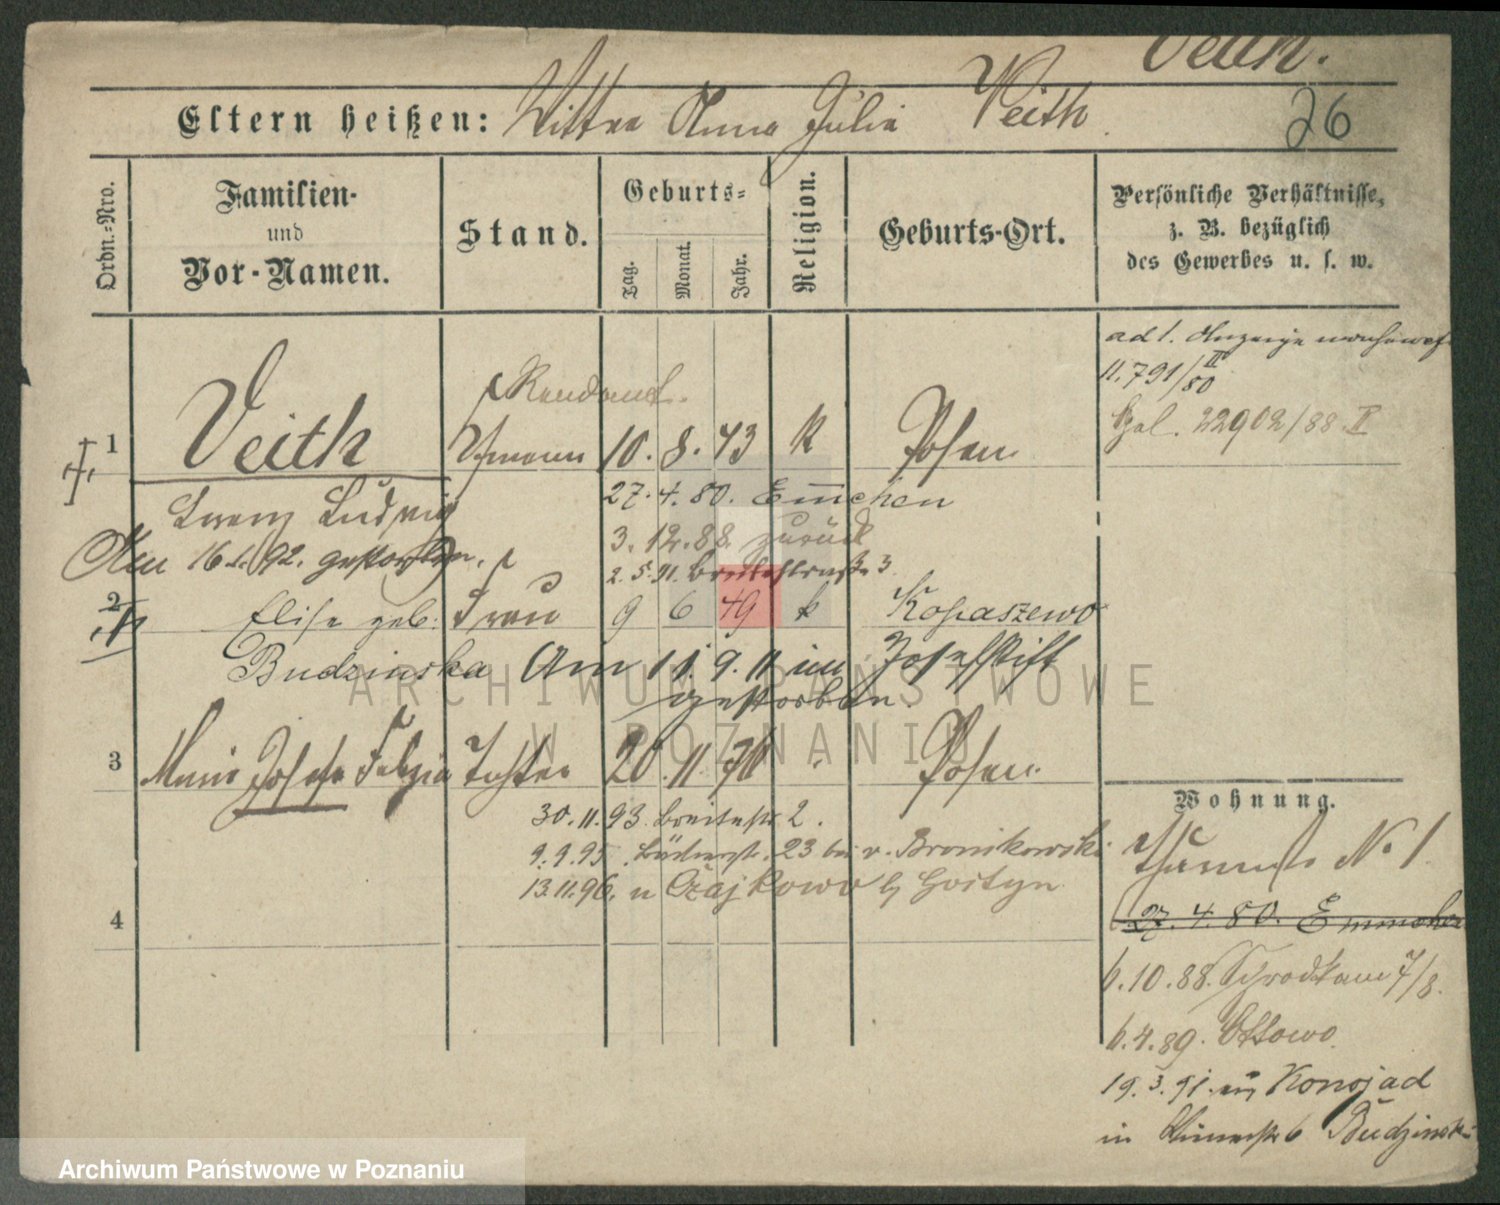 Veith.
Eltern heißen: Wittwe Anna Julie Veith
26
Ordn.-Nro.
Familien- und Vor-Namen.
Stand.
Geburts-
Tag.
Monat.
Jahr.
Religion.
Geburts-Ort.
Persönliche Verhältnisse, z. B. bezüglich des Gewerbes u. s. w.
ad 1. Anzeige
n. 791/80 II
22902/88 II
Rendant.
1 Veith 10. 8. 43 k Posen
Franz Ludwig
27. 4. 80. Em̅chen
3. 12. 88. zurück
Am 16. 1. 92. gestorben.
2. 5. 91. Breitestraße 3
2 Elise geb. Frau 9 6 49 k Kopaszewo
Budzinska Am 11. 9. 11 im Josefstift
gestorben.
3 Marie Josefa Felizia Tochter 20. 11. 70 " Posen
30. 11. 93. Breitestr. 2.
9. 9. 95. 23 bei v. Bronikowski
13. 11. 96. n Czajkowo b/ Gostyn
4
Wohnung.
No 1
27. 4. 80. Emmchen
6. 10. 88. Schrodkam 7/8.
6. 4. 89. Ottowo
19. 3. 91. aus Konojad
in 6 Budzinski
ARCHIWUM PAŃSTWOWE
W POZNANIU
Archiwum Państwowe w Poznaniu